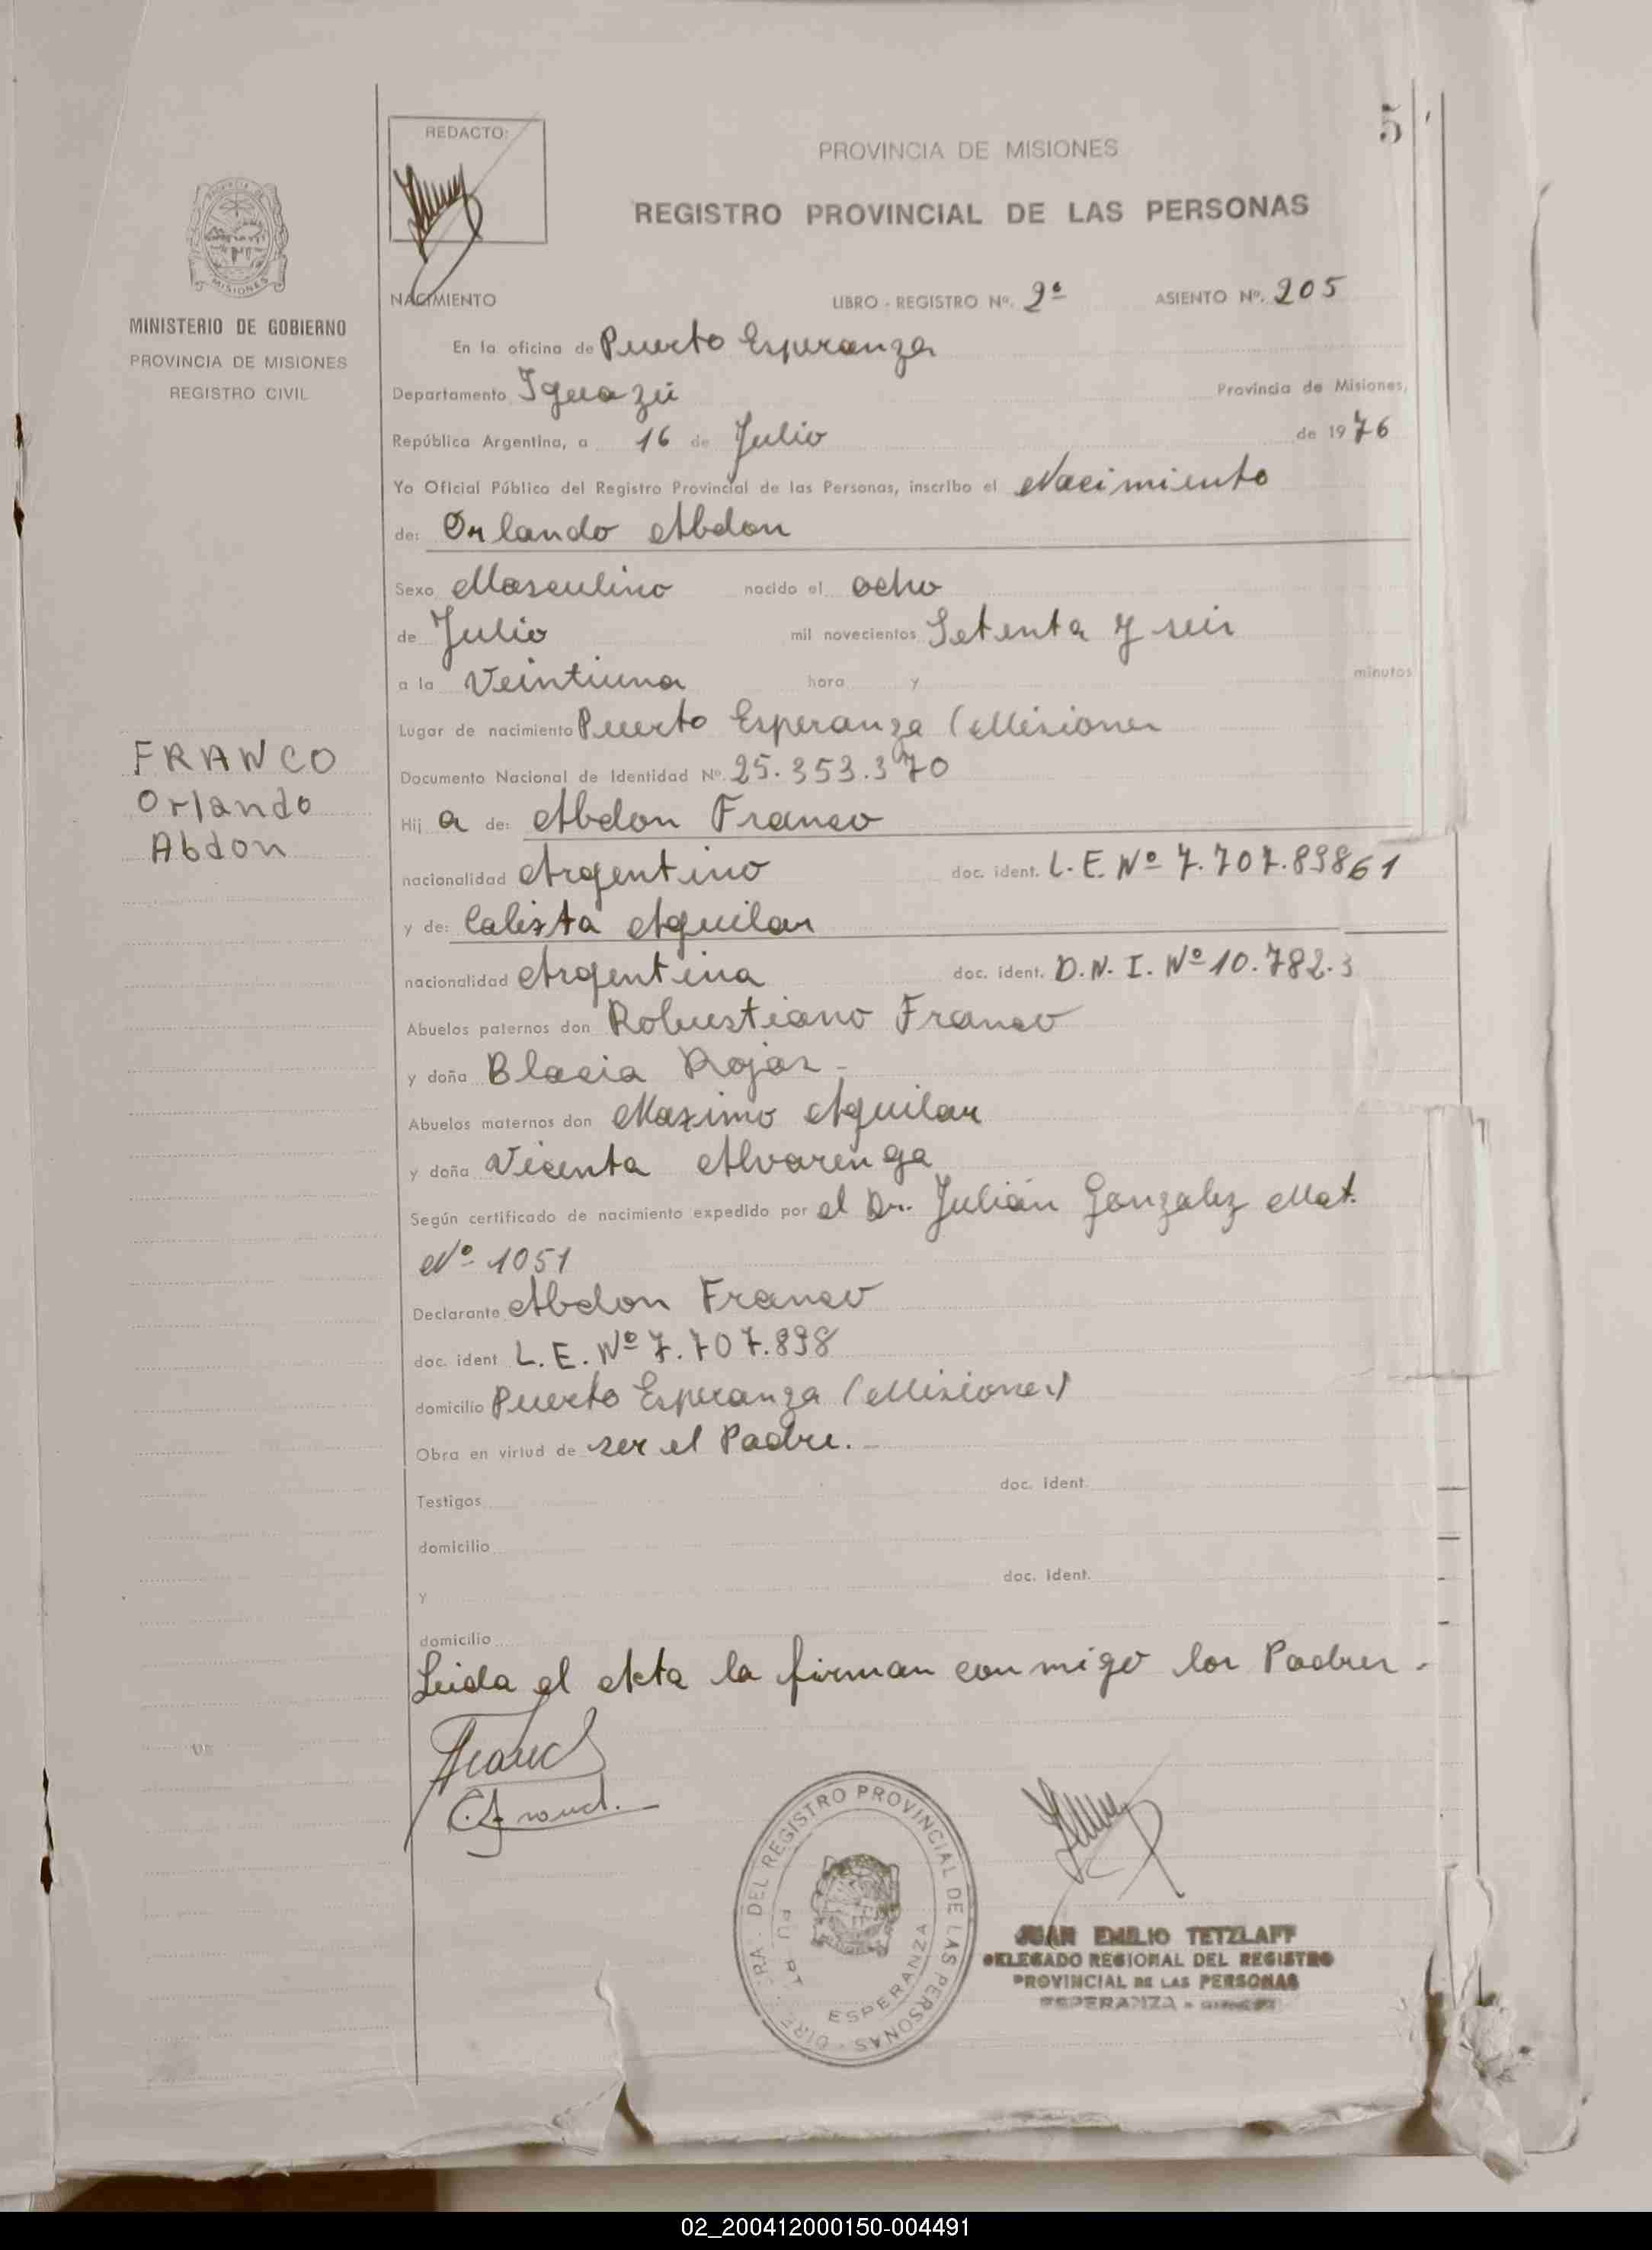 5
REDACTO:
PROVINCIA DE MISIONES
REGISTRO PROVINCIAL DE LAS PERSONAS
MISIONES
MINISTERIO DE GOBIERNO
PROVINCIA DE MISIONES
REGISTRO CIVIL
NACIMIENTO LIBRO - REGISTRO Nº. 2º ASIENTO Nº. 205
En la oficina de Puerto Esperanza
Departamento Iguazú Provincia de Misiones,
República Argentina, a 16 de Julio de 1976
Yo Oficial Público del Registro Provincial de las Personas, inscribo el Nacimiento
de: Orlando Abdon
Sexo Masculino nacido el ocho
de Julio mil novecientos Setenta y seis
a la Veintiuna hora y minutos
Lugar de nacimiento Puerto Esperanza (Misiones
Documento Nacional de Identidad Nº. 25.353.370
FRANCO
Orlando
Abdon
Hij a de: Abdon Franco
nacionalidad Argentino doc. ident. L.E. Nº 7.707.898
61
y de: Calixta Aguilar
nacionalidad Argentina doc. ident. D.N.I. Nº 10.782.3
Abuelos paternos don Robustiano Franco
y doña Blacia Rojas -
Abuelos maternos don Maximo Aguilar
y doña Vicenta Alvarenga
Según certificado de nacimiento expedido por el Dr. Julián Gonzalez Mat.
Nº 1051
Declarante Abdon Franco
doc. ident L.E. Nº 7.707.898
domicilio Puerto Esperanza (Misiones)
Obra en virtud de ser el Padre. -
Testigos doc. ident.
domicilio
y doc. ident.
domicilio
Leida el Acta la firman conmigo los Padres.
DEL REGISTRO PROVINCIAL DE LAS PERSONAS
ESPERANZA
JUAN EMILIO TETZLAFF
DELEGADO REGIONAL DEL REGISTRO
PROVINCIAL DE LAS PERSONAS
ESPERANZA -
02_200412000150-004491